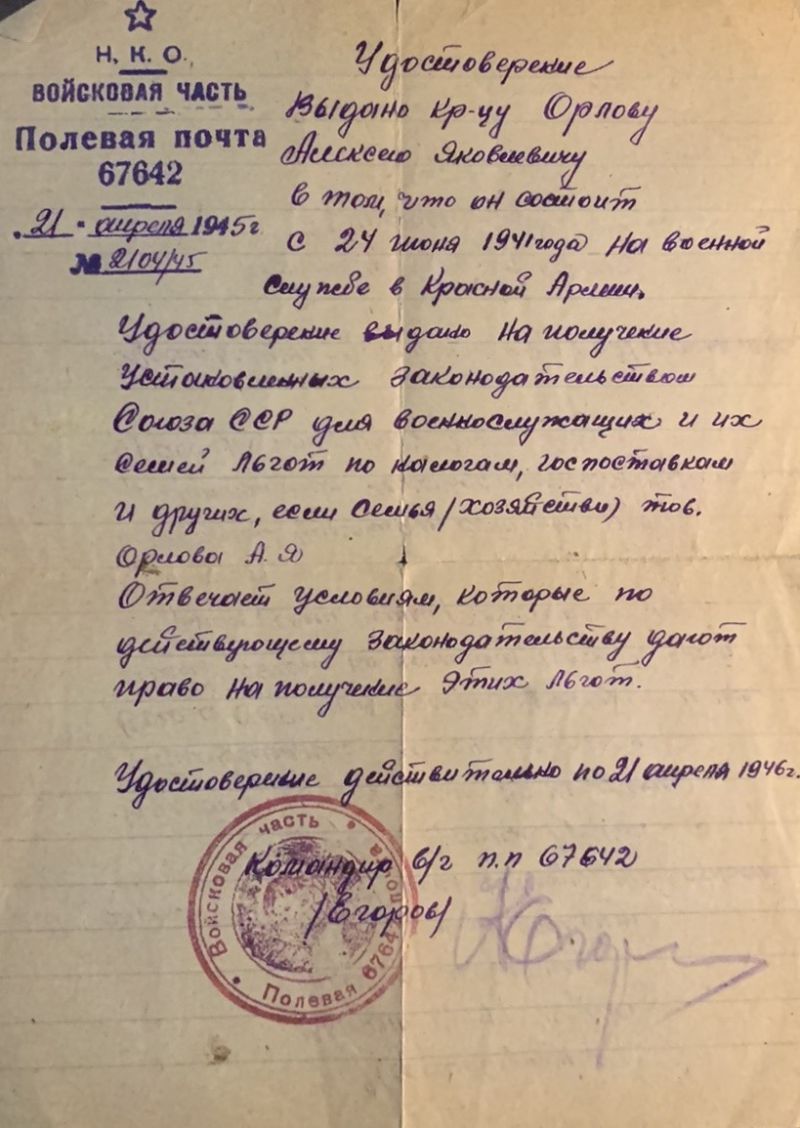 Н. К. О.
ВОЙСКОВАЯ ЧАСТЬ
Полевая почта
67642
„21“ апреля 1945 г
№ 2104/45
Удостоверение
Выдано кр-цу Орлову
Алексею Яковлевичу
в том, что он состоит
с 24 июня 1941 года на военной
службе в Красной Армии.
Удостоверение выдано на получение
установленных законодательством
Союза ССР для военнослужащих и их
семей льгот по налогам, госпоставкам
и других, если семья /хозяйство) тов.
Орлова А. Я
Отвечает условиям, которые по
действующему законодательству дают
право на получение этих льгот.
Удостоверение действительно по 21 апреля 1946 г.
Командир в/ч п.п 67642
/Егоров/
Войсковая часть
Полевая почта 67642